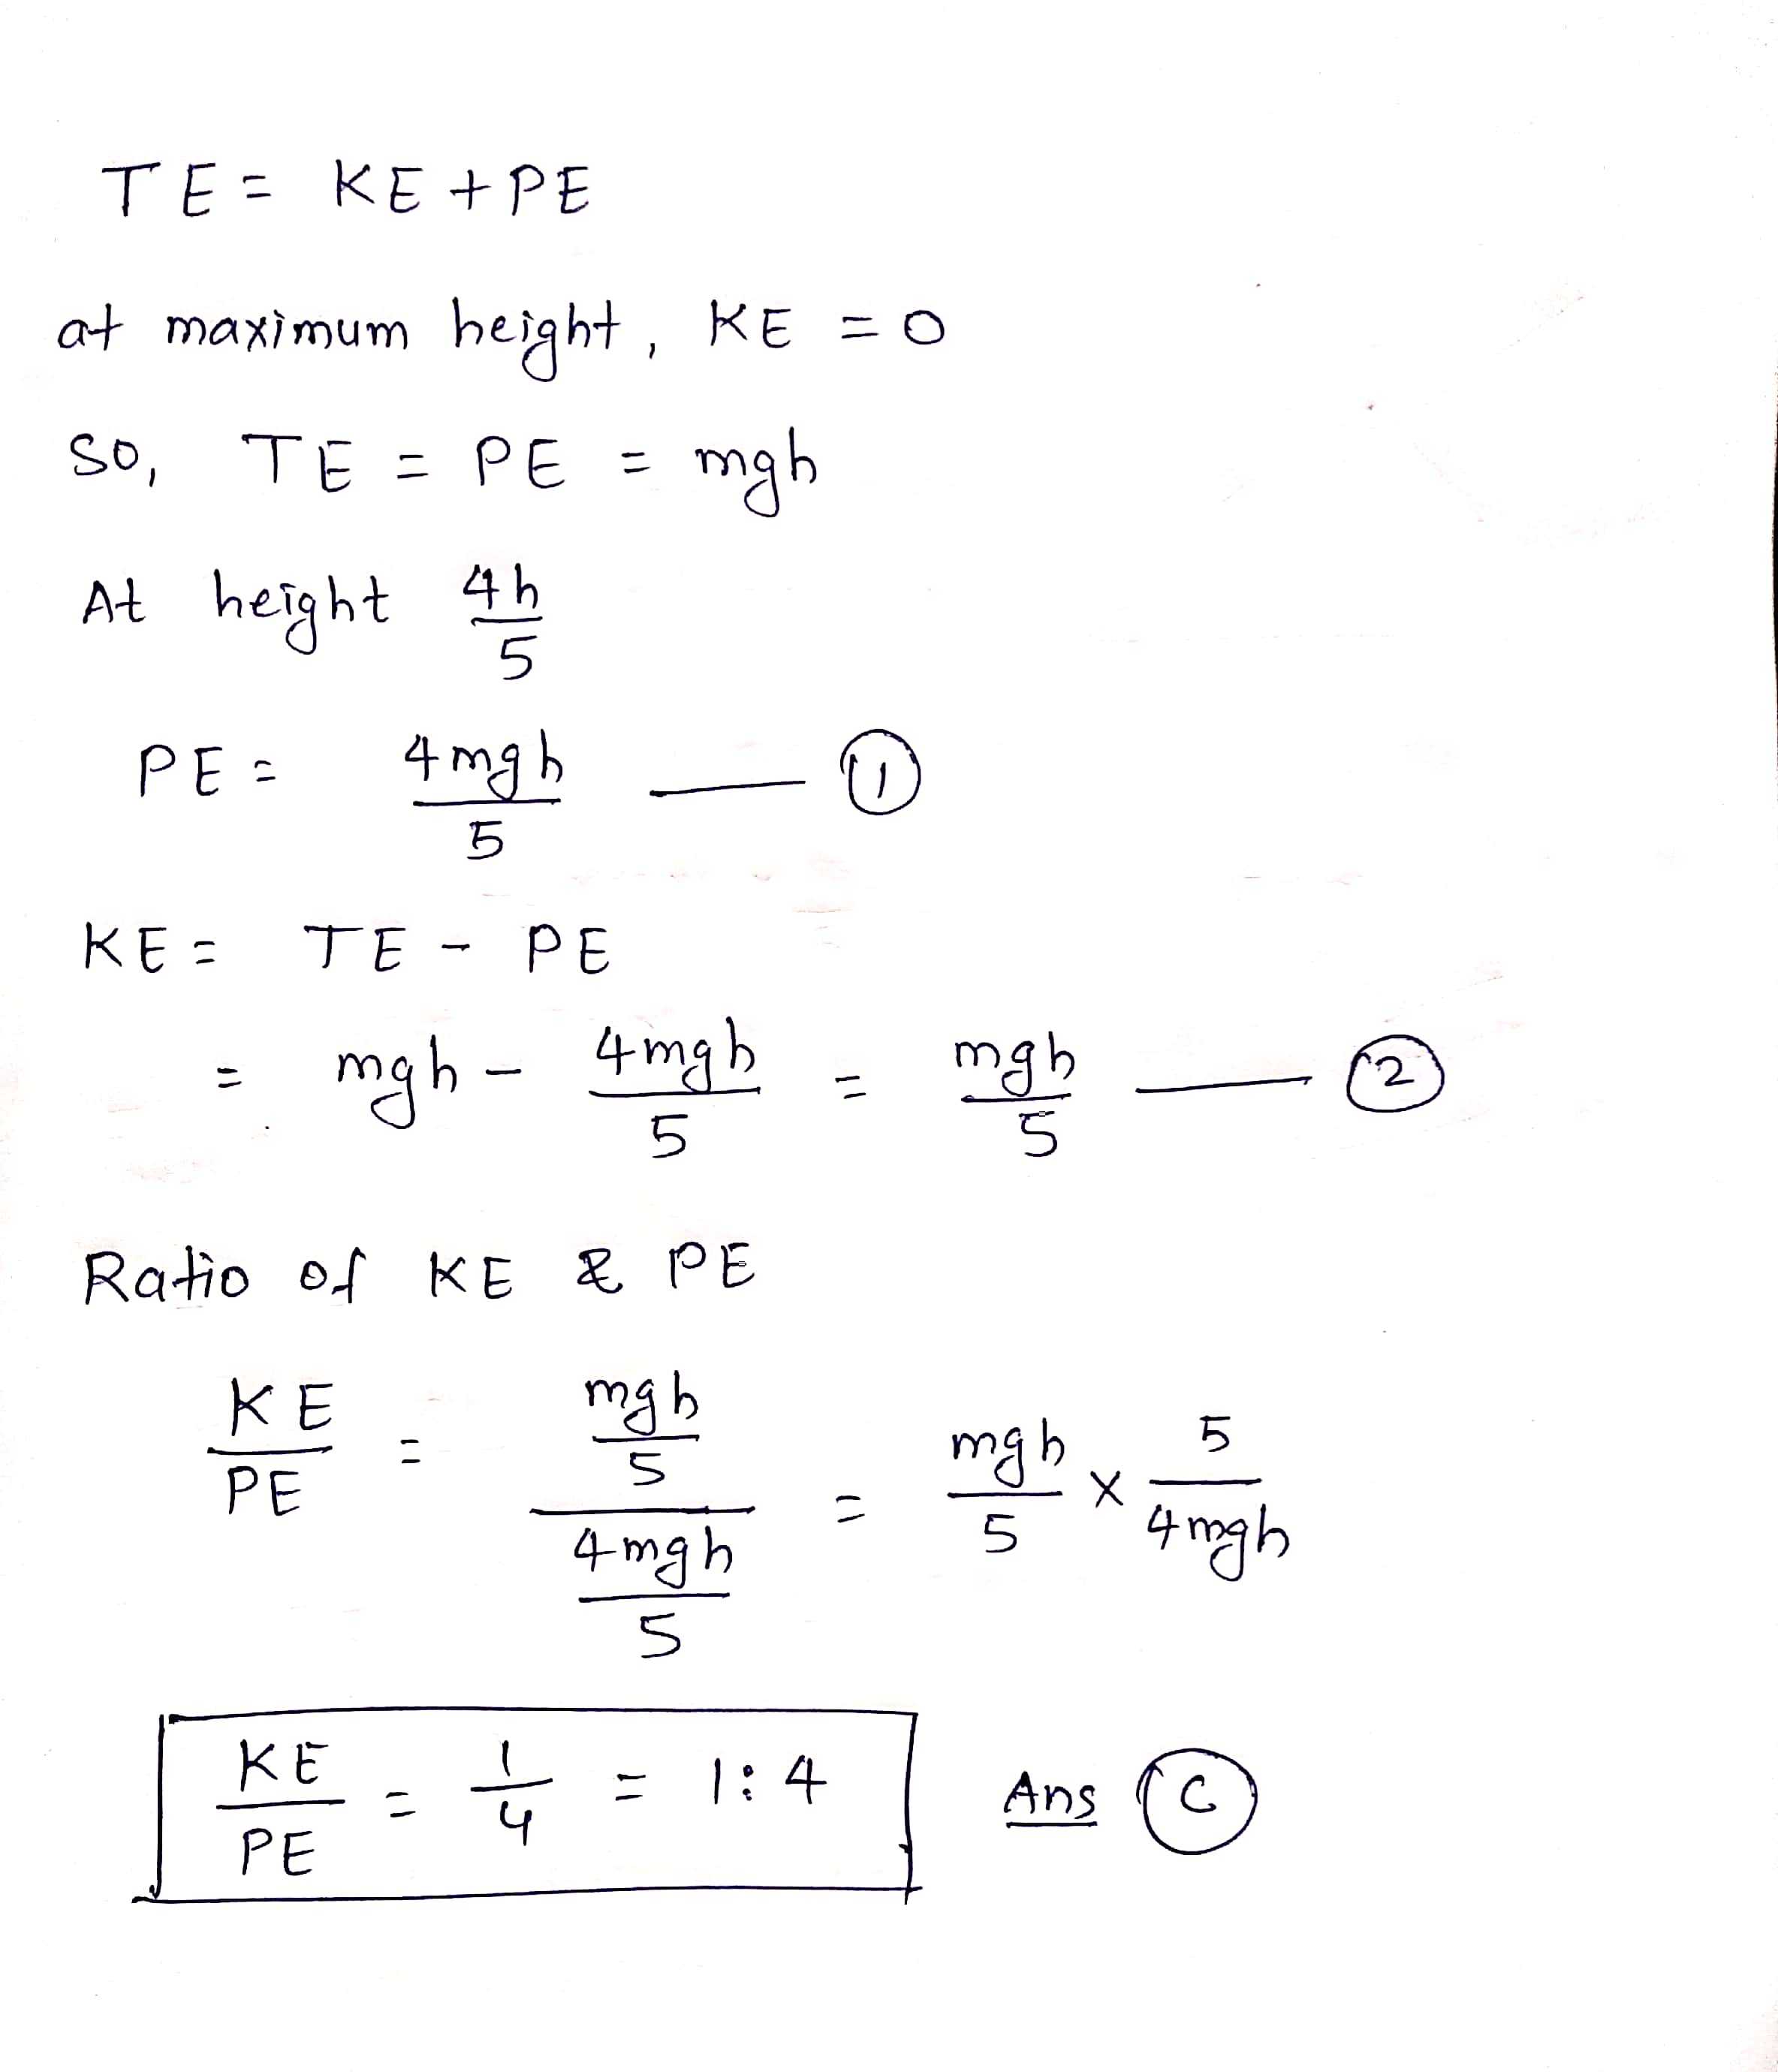 TE = KE + PE
at maximum height, KE = 0
so, TE = PE = mgh
At height 4h/5
PE = 4mgh/5 — ①
KE = TE - PE
= mgh - 4mgh/5 = mgh/5 — ②
Ratio of KE & PE
KE/PE = (mgh/5)/(4mgh/5) = mgh/5 × 5/4mgh
KE/PE = 1/4 = 1:4 Ans Ⓒ